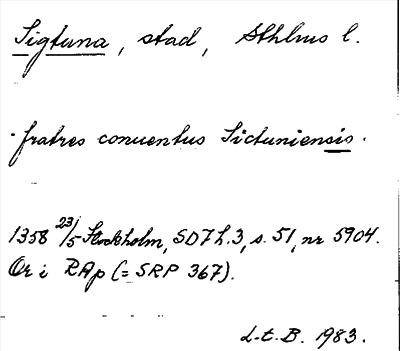 Sigtuna, stad, Sthlms l.
fratres conuentus Sictuniensis.
1358 23/5 Stockholm, SD 7 h.3, s. 51, nr 5904.
Or i RAp (= SRP 367).
L.t.B. 1983.